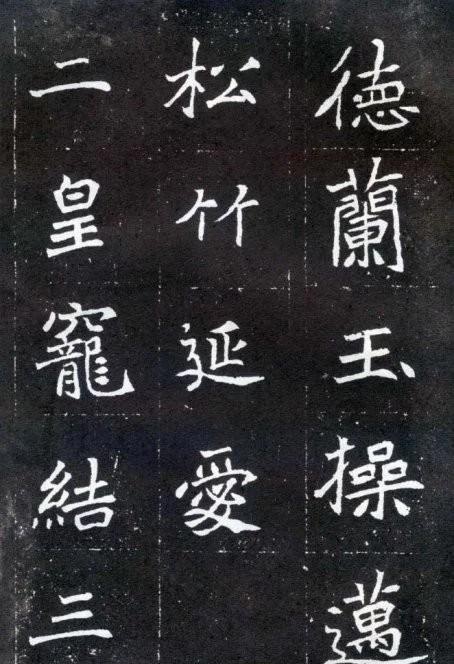 徳蘭玉操邁
松竹延愛
二皇竉結三